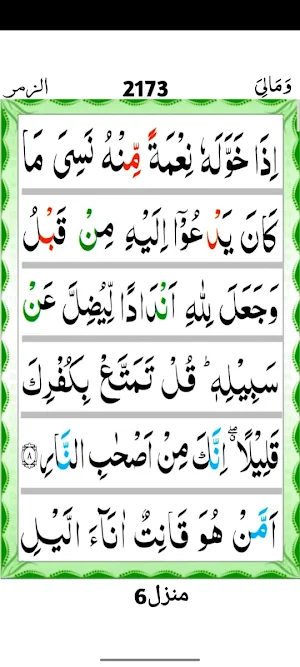 الزمر 2173 وَمَالِیَ
اِذَا خَوَّلَهٗ نِعْمَةً مِّنْهُ نَسِیَ مَا
كَانَ یَدْعُوْۤا اِلَیْهِ مِنْ قَبْلُ
وَجَعَلَ لِلّٰهِ اَنْدَادًا لِّیُضِلَّ عَنْ
سَبِیْلِهٖ ؕ قُلْ تَمَتَّعْ بِكُفْرِكَ
قَلِیْلًا ۖۗ اِنَّكَ مِنْ اَصْحٰبِ النَّارِ ۝۸
اَمَّنْ هُوَ قَانِتٌ اٰنَآءَ الَّیْلِ
منزل6